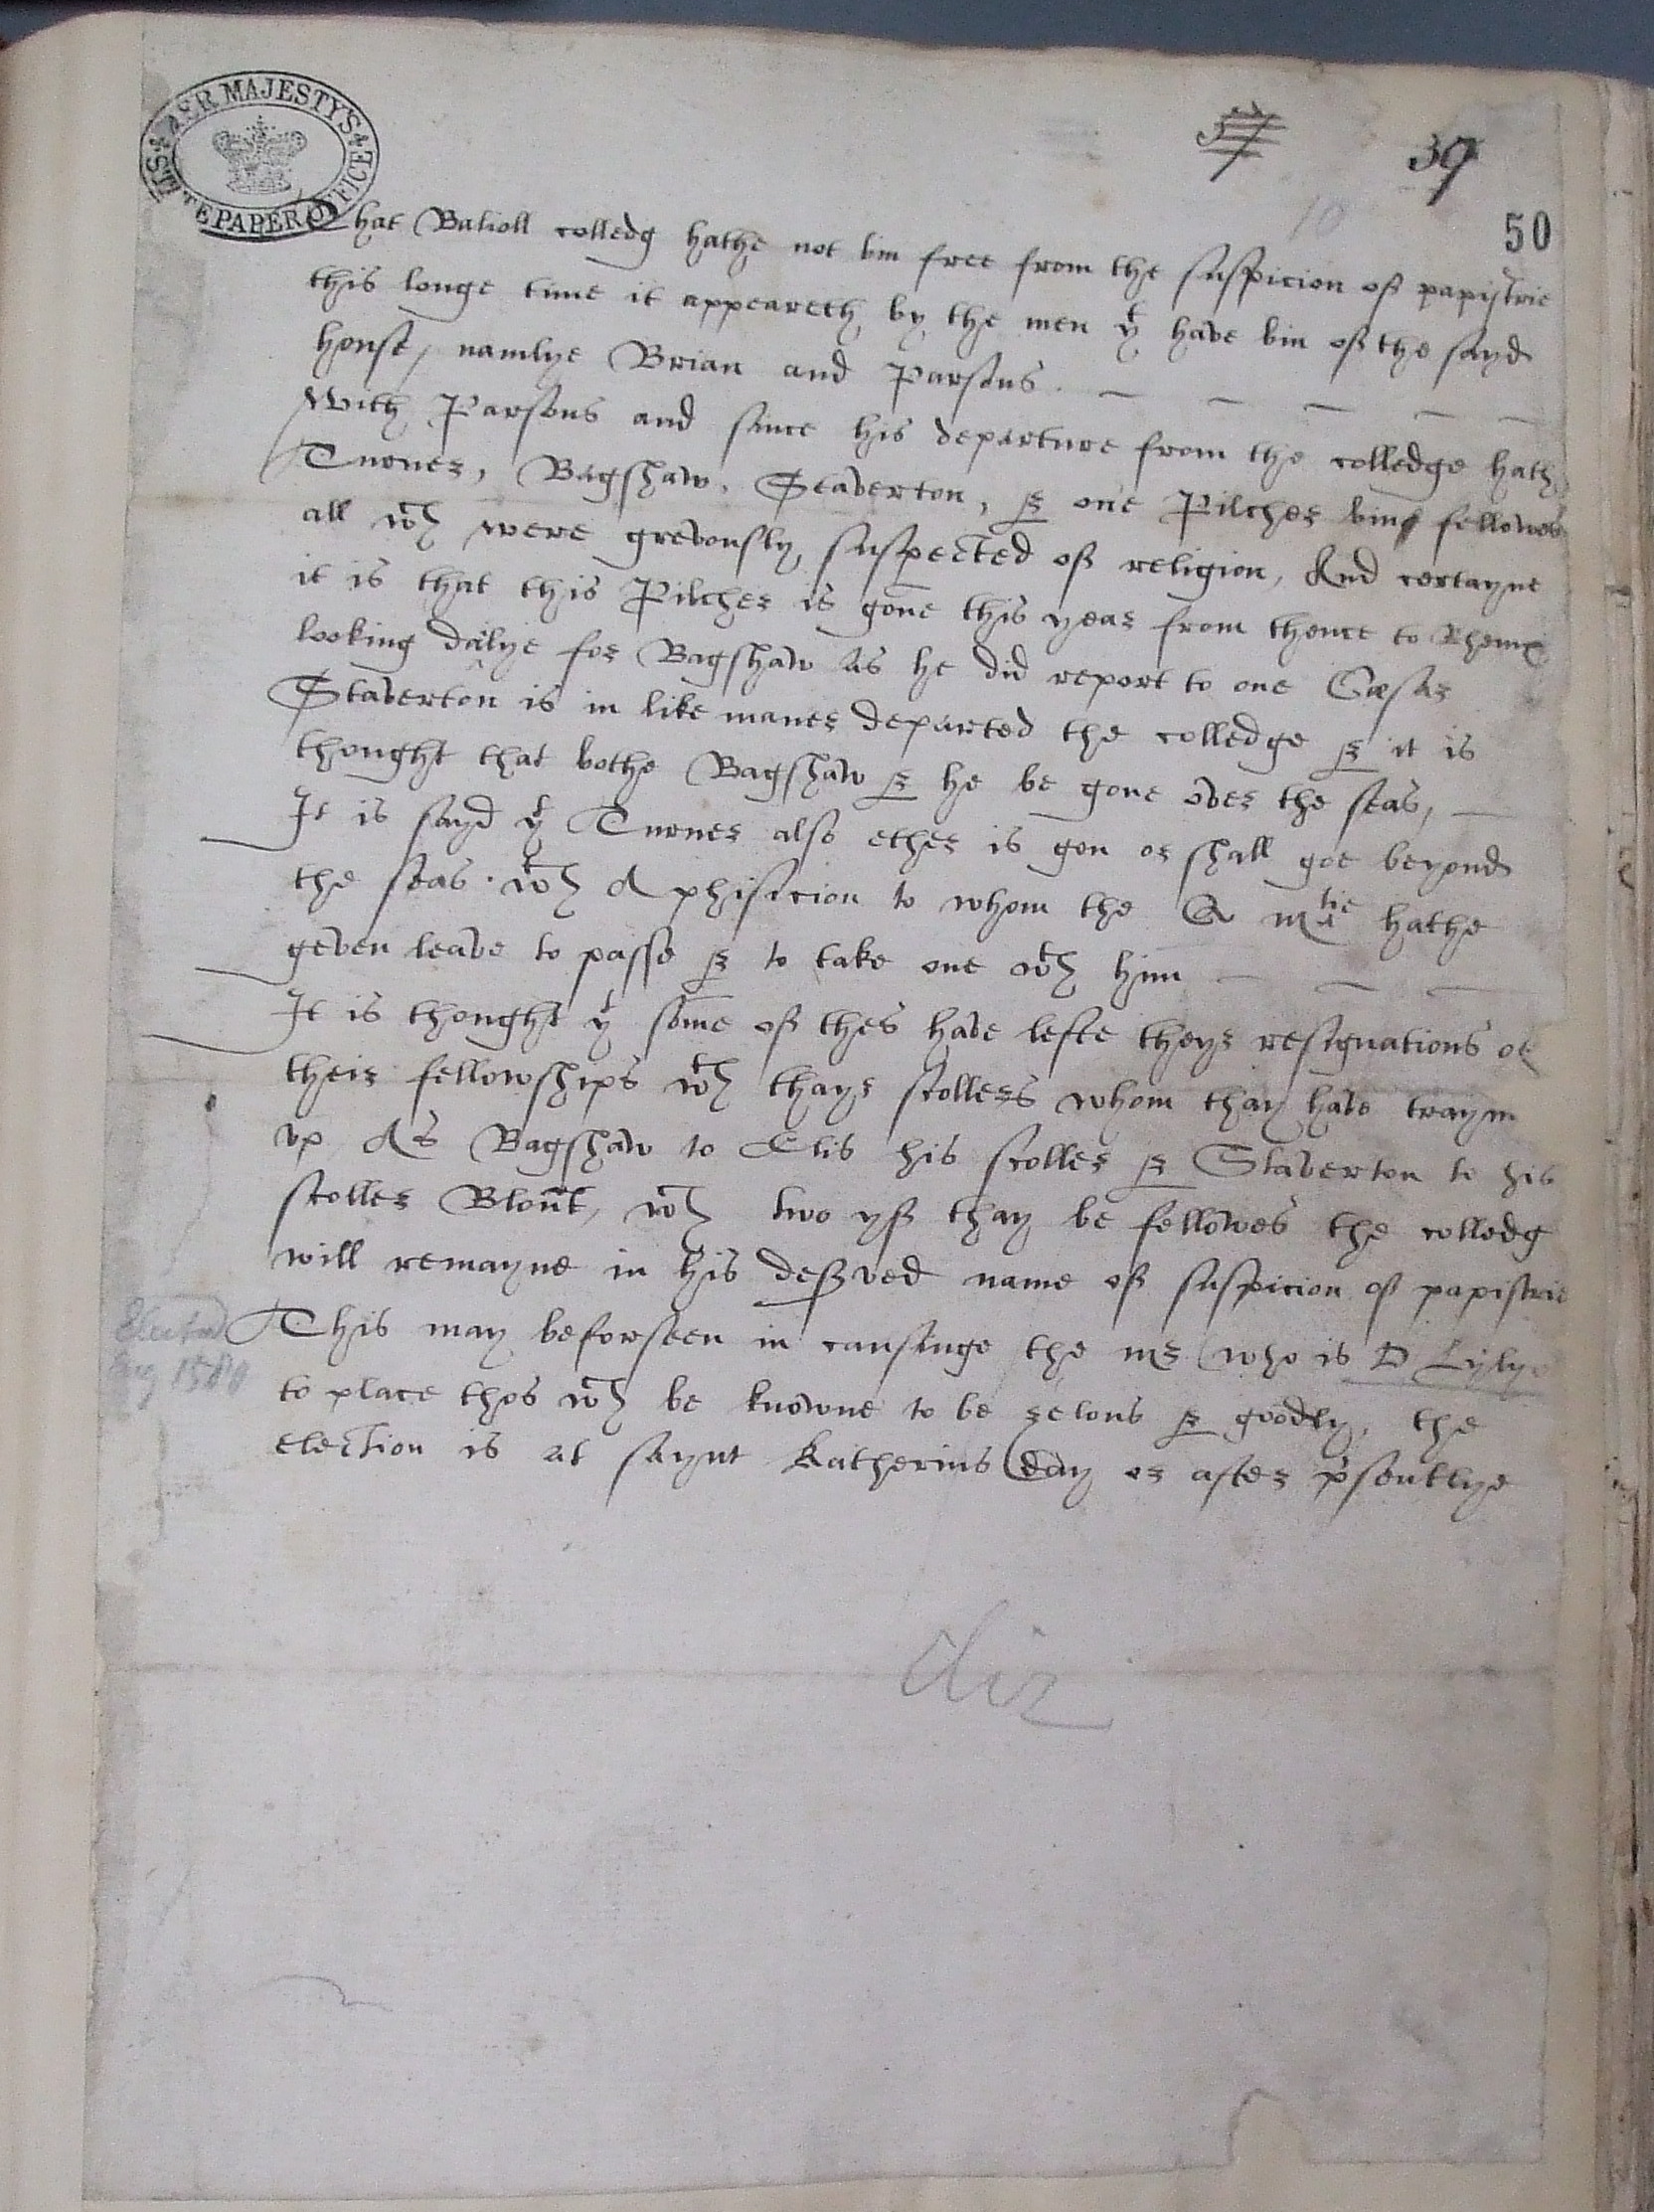 HER MAJESTY'S STATE PAPER OFFICE
57 39
10
50
That Balioll colledg hathe not bin free from the suspicion of papistrie
this longe time it appeareth by the men yt have bin of the sayd
house, namlye Brian and Parsons.
With Parsons and since his departure from the colledge hath
Turner, Bagshaw, Staverton, & one Pilcher bin fellowes
all wch were grevously suspected of religion, And certayne
it is that this Pilcher is gone this year from thence to Rhems
looking dailye for Bagshaw as he did report to one Cæsar
Staverton is in like maner departed the colledge & it is
thought that bothe Bagshaw & he be gone over the seas,
It is sayd yt Turner also ether is gon or shall goe beyond
the seas wth A phisicion to whom the Q matie hathe
geven leave to passe & to take one wth him
It is thought yt some of thes have lefte theyr resignations of
their fellowships wth thayr scollers whom thay have traym
up As Bagshaw to Elis his scoller & Staverton to his
scoller Blount, wch two yf thay be fellowes the colledg
will remayne in his deserved name of suspicion of papistrie
This may be forseen in causinge the mr (who is D Lylye
to place thos wch be knowne to be zelous & goodly, the
election is at saynt Katherins day or after presentlye
Elected
1580